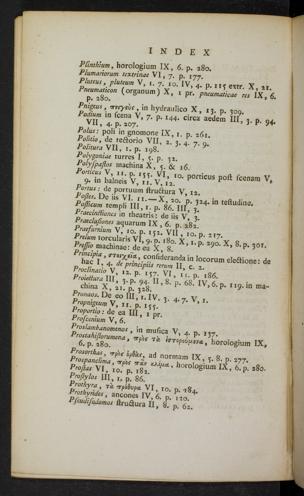 INDEX
Plinthium, horologium IX, 6. p. 280.
Plumariorum textrinae VI, 7. p. 177.
Pluteus, pluteum V, 1. 7. 10. IV, 4. p. 115 extr. X, 21.
Pneumaticon (organum) X, 1 pr. pneumaticae res IX, 6.
p. 280.
Pnigeus, πνιγεὺς, in hydraulico X, 13. p. 309.
Podium in scena V, 7. p. 144. circa aedem III, 3. p. 94.
VII, 4. p. 207.
Polus: poli in gnomone IX, 1. p. 261.
Politio, de rectorio VII, 2. 3. 4. 7. 9.
Politura VII, 1. p. 198.
Polygoniae turres I, 5. p. 32.
Polyspastos machina X, 5. & 16.
Porticus V, 11. p. 155. VI, 10. porticus post scenam V,
9. in balneis V, 11. V, 12.
Portus: de portuum structura V, 12.
Postes. De iis VI. 11.—X, 20. p. 324. in testudine.
Posticum templi III, 1. p. 86. III, 3.
Praecinctiones in theatris: de iis V, 3.
Praeclusiones aquarum IX, 6. p. 282.
Praefurnium V, 10. p. 151. VII, 10. p. 217.
Prelum torcularis VI, 9. p. 180. X, 1. p. 290. X, 8. p. 301.
Pressio machinae: de ea X, 8.
Principia, στοιχεῖα, consideranda in locorum electione: de
hac I, 4. de principiis rerum II, c. 2.
Proclinatio V, 12. p. 157. VI, 11. p. 186.
Proiectura III, 3. p. 94. II, 8. p. 68. IV, 6. p. 119. in ma-
china X, 21. p. 328.
Pronaos. De eo III, 1. IV. 3. 4. 7. V, 1.
Propnigeum V, 11. p. 155.
Proportio: de ea III, 1 pr.
Proscenium V, 6.
Proslambanomenos, in musica V, 4. p. 137.
Prostahistorumena, πρὸς τὰ ἱστορούμενα, horologium IX,
6. p. 280.
Prosorthas, πρὸς ὀρθὰς, ad normam IX, 5. 8. p. 277.
Prospanclima, πρὸς πᾶν κλίμα, horologium IX, 6. p. 280.
Prostas VI, 10. p. 182.
Prostylos III, 1. p. 86.
Prothyra, τὰ πρόθυρα VI, 10. p. 184.
Prothyrides, ancones IV, 6. p. 120.
Pseudisodomos structura II, 8. p. 62.